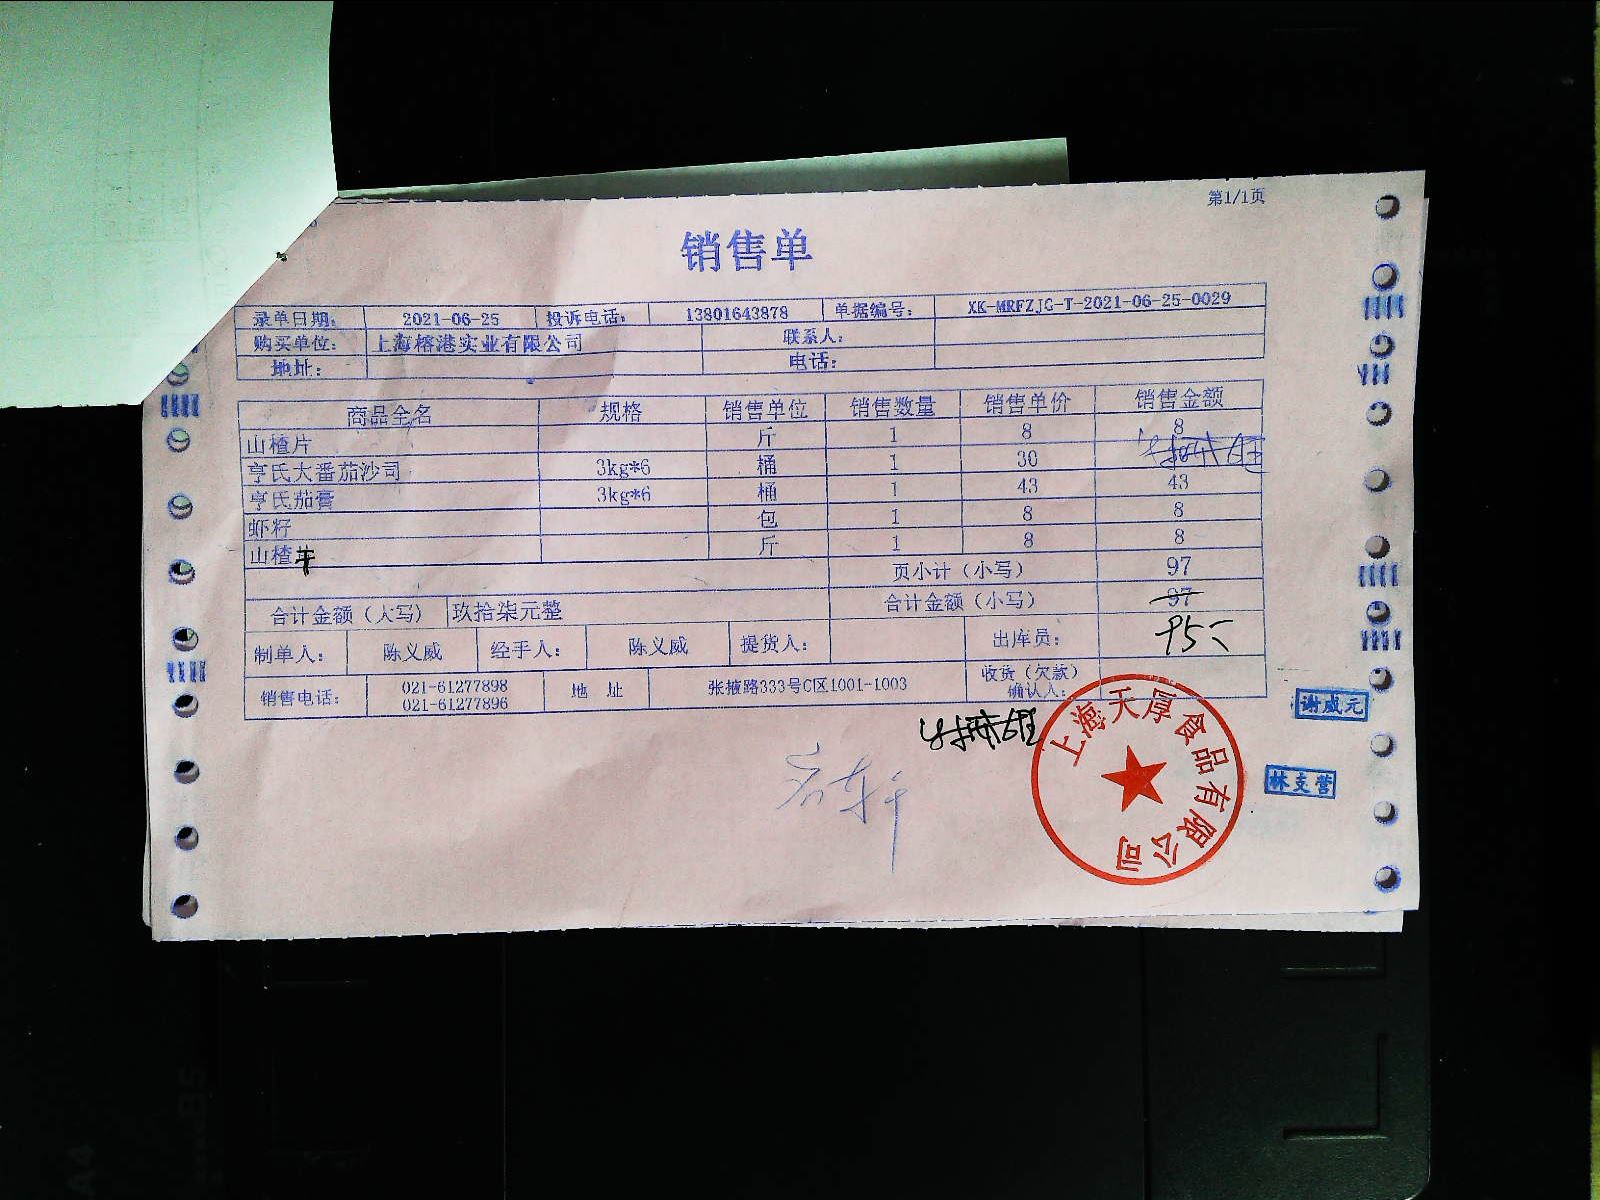 第1/1页
销售单
录单日期: 2021-06-25 投诉电话: 13801643878 单据编号: XK-MRFZJG-T-2021-06-25-0029
购买单位: 上海榕港实业有限公司 联系人:
地址: 电话:
商品全名 规格 销售单位 销售数量 销售单价 销售金额
山楂片 斤 1 8 8
亨氏大番茄沙司 3kg*6 桶 1 30
亨氏茄膏 3kg*6 桶 1 43 43
虾籽 包 1 8 8
山楂 斤 1 8 8
页小计（小写） 97
合计金额（大写） 玖拾柒元整 合计金额（小写） 97
95
制单人: 陈义威 经手人: 陈义威 提货人: 出库员:
销售电话: 021-61277898 地 址 张掖路333号C区1001-1003 收货（欠款）
021-61277896 确认人:
上海天厚食品有限公司
谢成元
林支营
A4
B5